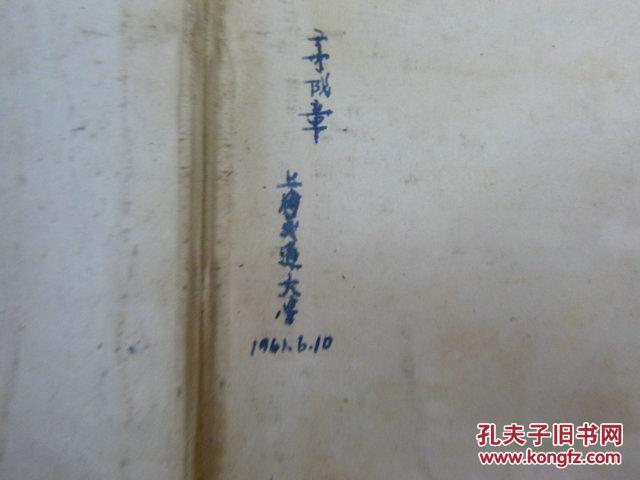 成章
上海交通大学
1961.6.10
孔夫子旧书网
www.kongfz.com